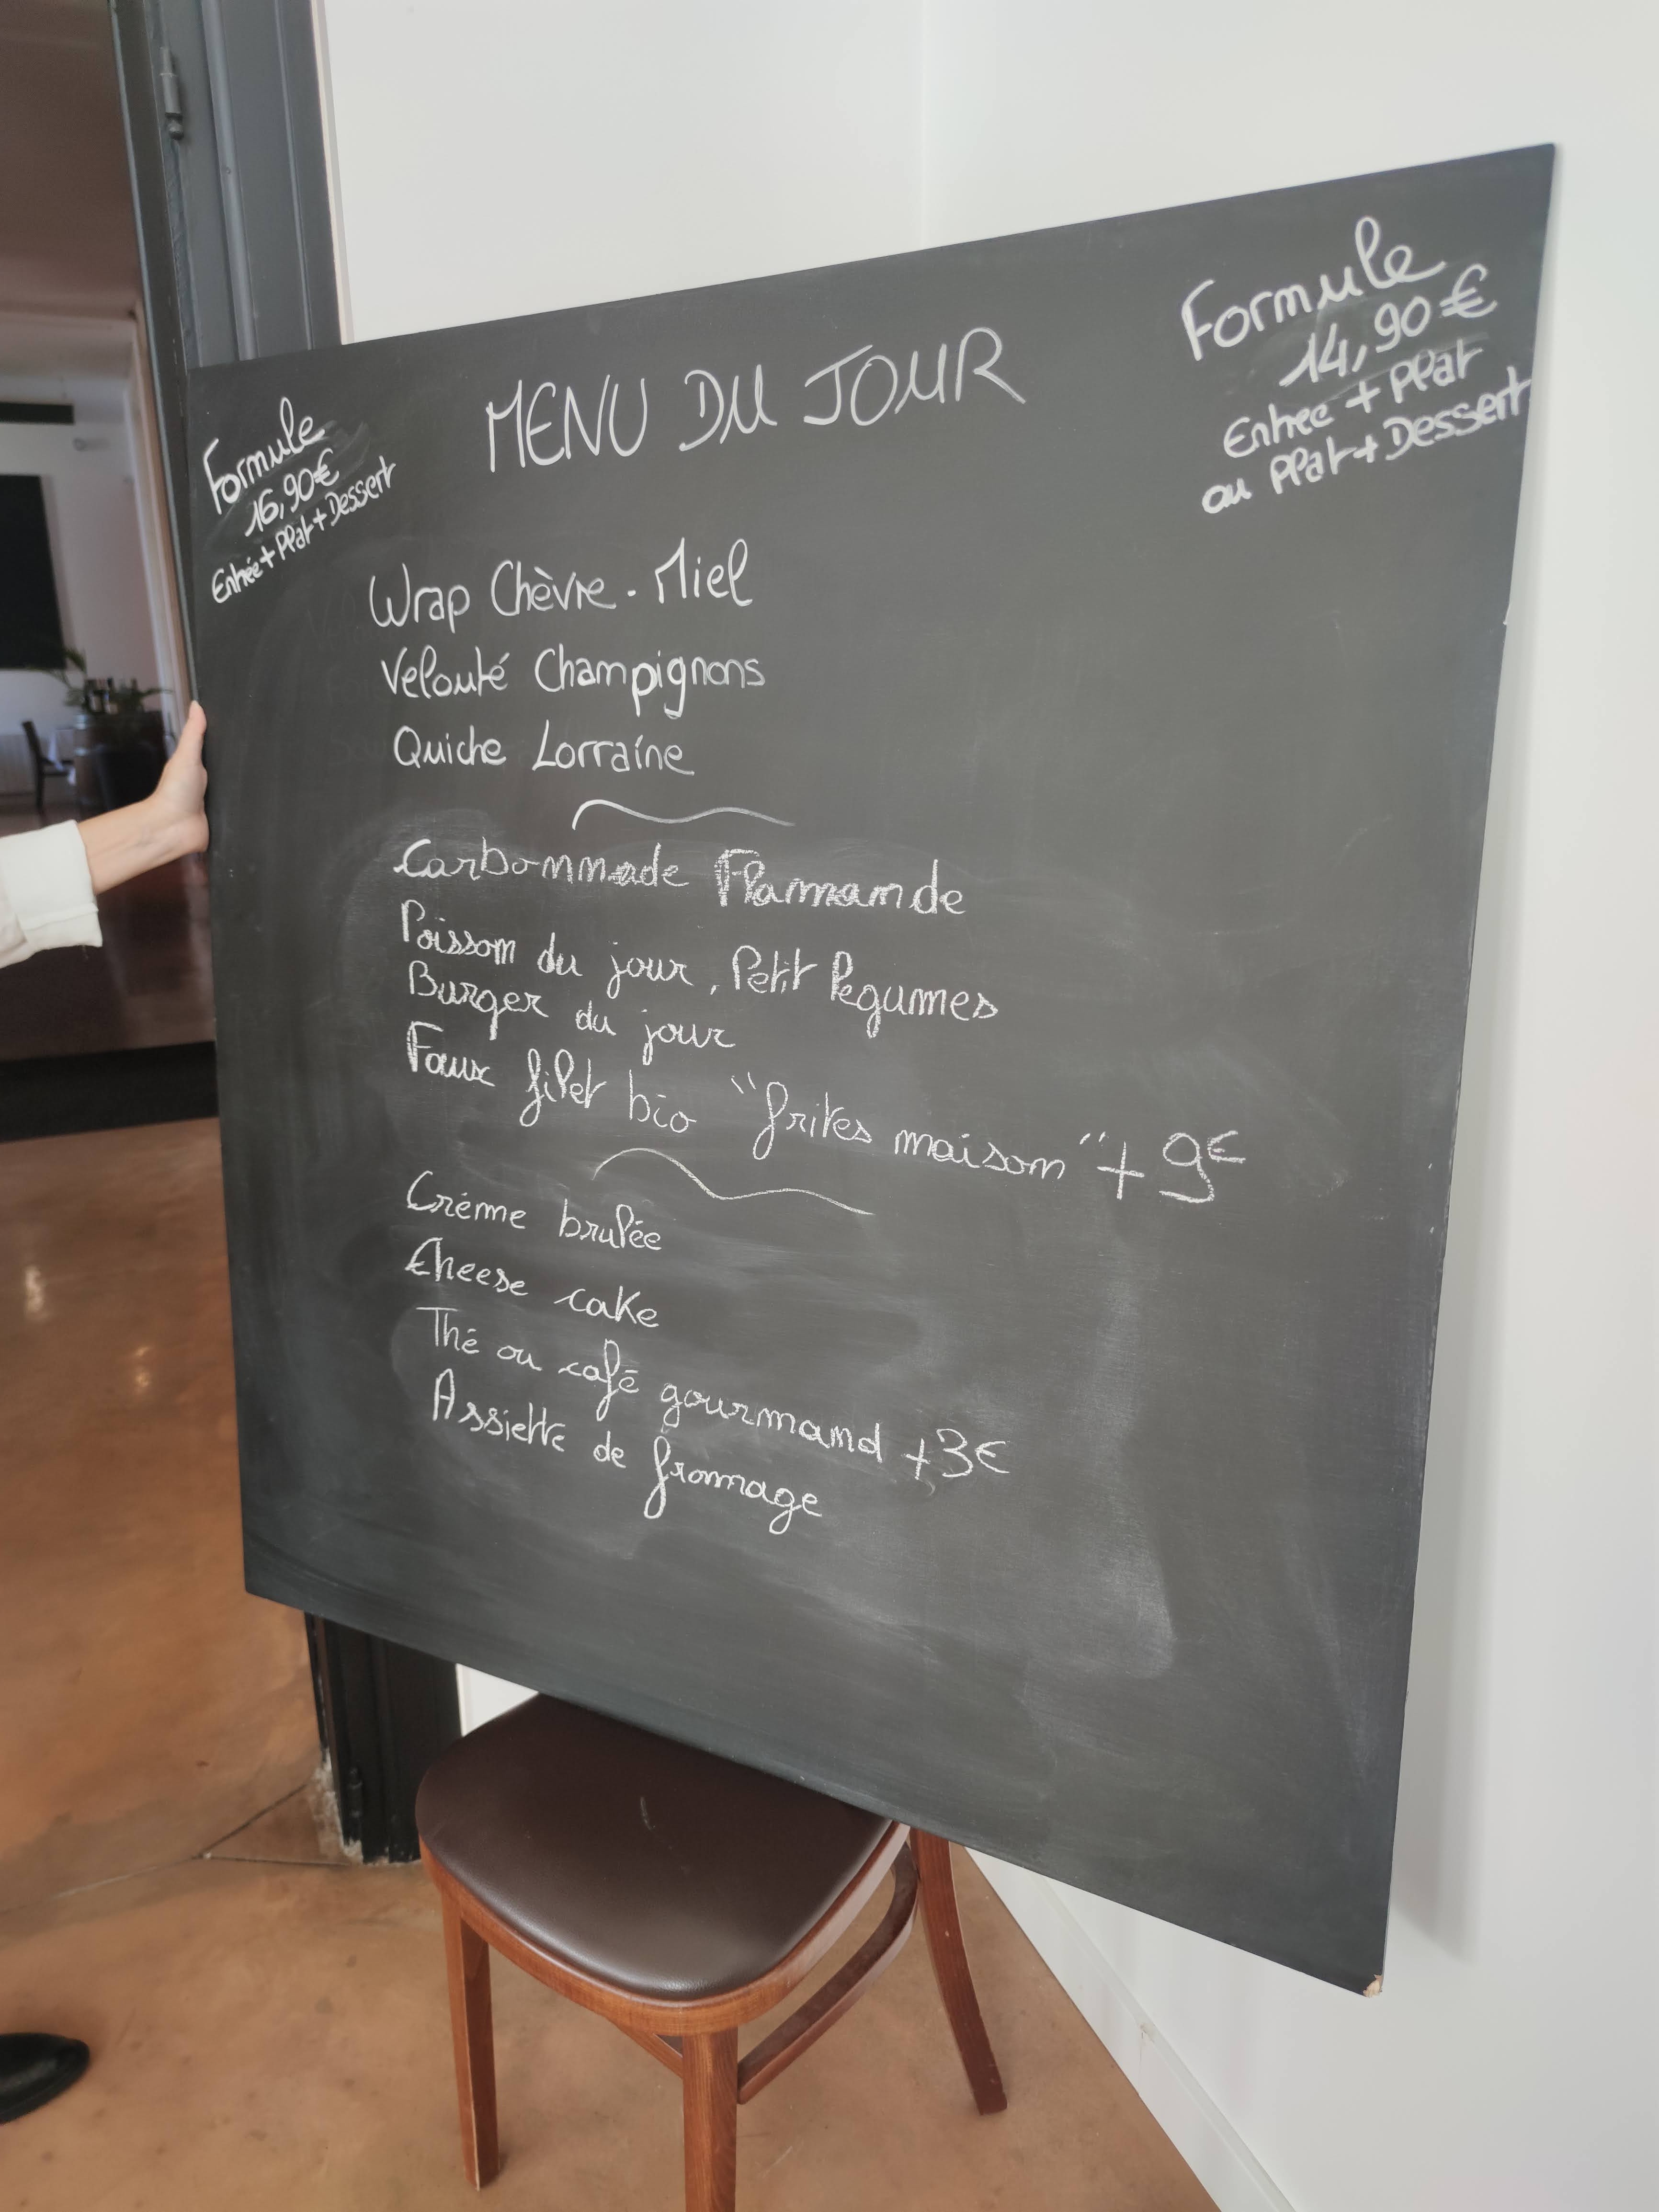 MENU DU JOUR
Formule
16,90€
Entrée + Plat + Dessert
Formule
14,90€
Entree + Plat
ou Plat + Dessert
Wrap Chèvre - Miel
Velouté Champignons
Quiche Lorraine
Carbommade Flamamde
Poissom du jour, Petit legumes
Burger du jour
Faux filet bio "frites maisom" + 9€
Créme brulée
Cheese cake
Thé ou café gourmand +3€
Assiette de fromage